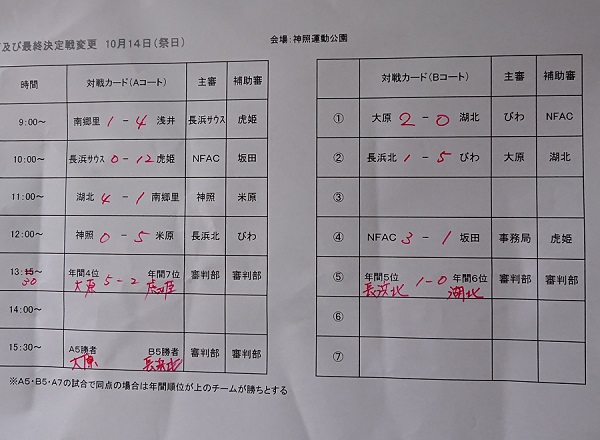 及び最終決定戦変更 10月14日(祭日)
会場:神照運動公園
時間 対戦カード(Aコート) 主審 補助審
9:00～ 南郷里 1 - 4 浅井 長浜サウス 虎姫
10:00～ 長浜サウス 0 - 12 虎姫 NFAC 坂田
11:00～ 湖北 4 - 1 南郷里 神照 米原
12:00～ 神照 0 - 5 米原 長浜北 びわ
13:15～ 年間4位 5 - 2 年間7位 審判部 審判部
30 大原 虎姫
14:00～
15:30～ A5勝者 B5勝者 審判部 審判部
大原 長浜北
対戦カード(Bコート) 主審 補助審
① 大原 2 - 0 湖北 びわ NFAC
② 長浜北 1 - 5 びわ 大原 湖北
③
④ NFAC 3 - 1 坂田 事務局 虎姫
⑤ 年間5位 1 - 0 年間6位 審判部 審判部
長浜北 湖北
⑥
⑦
※A5・B5・A7の試合で同点の場合は年間順位が上のチームが勝ちとする